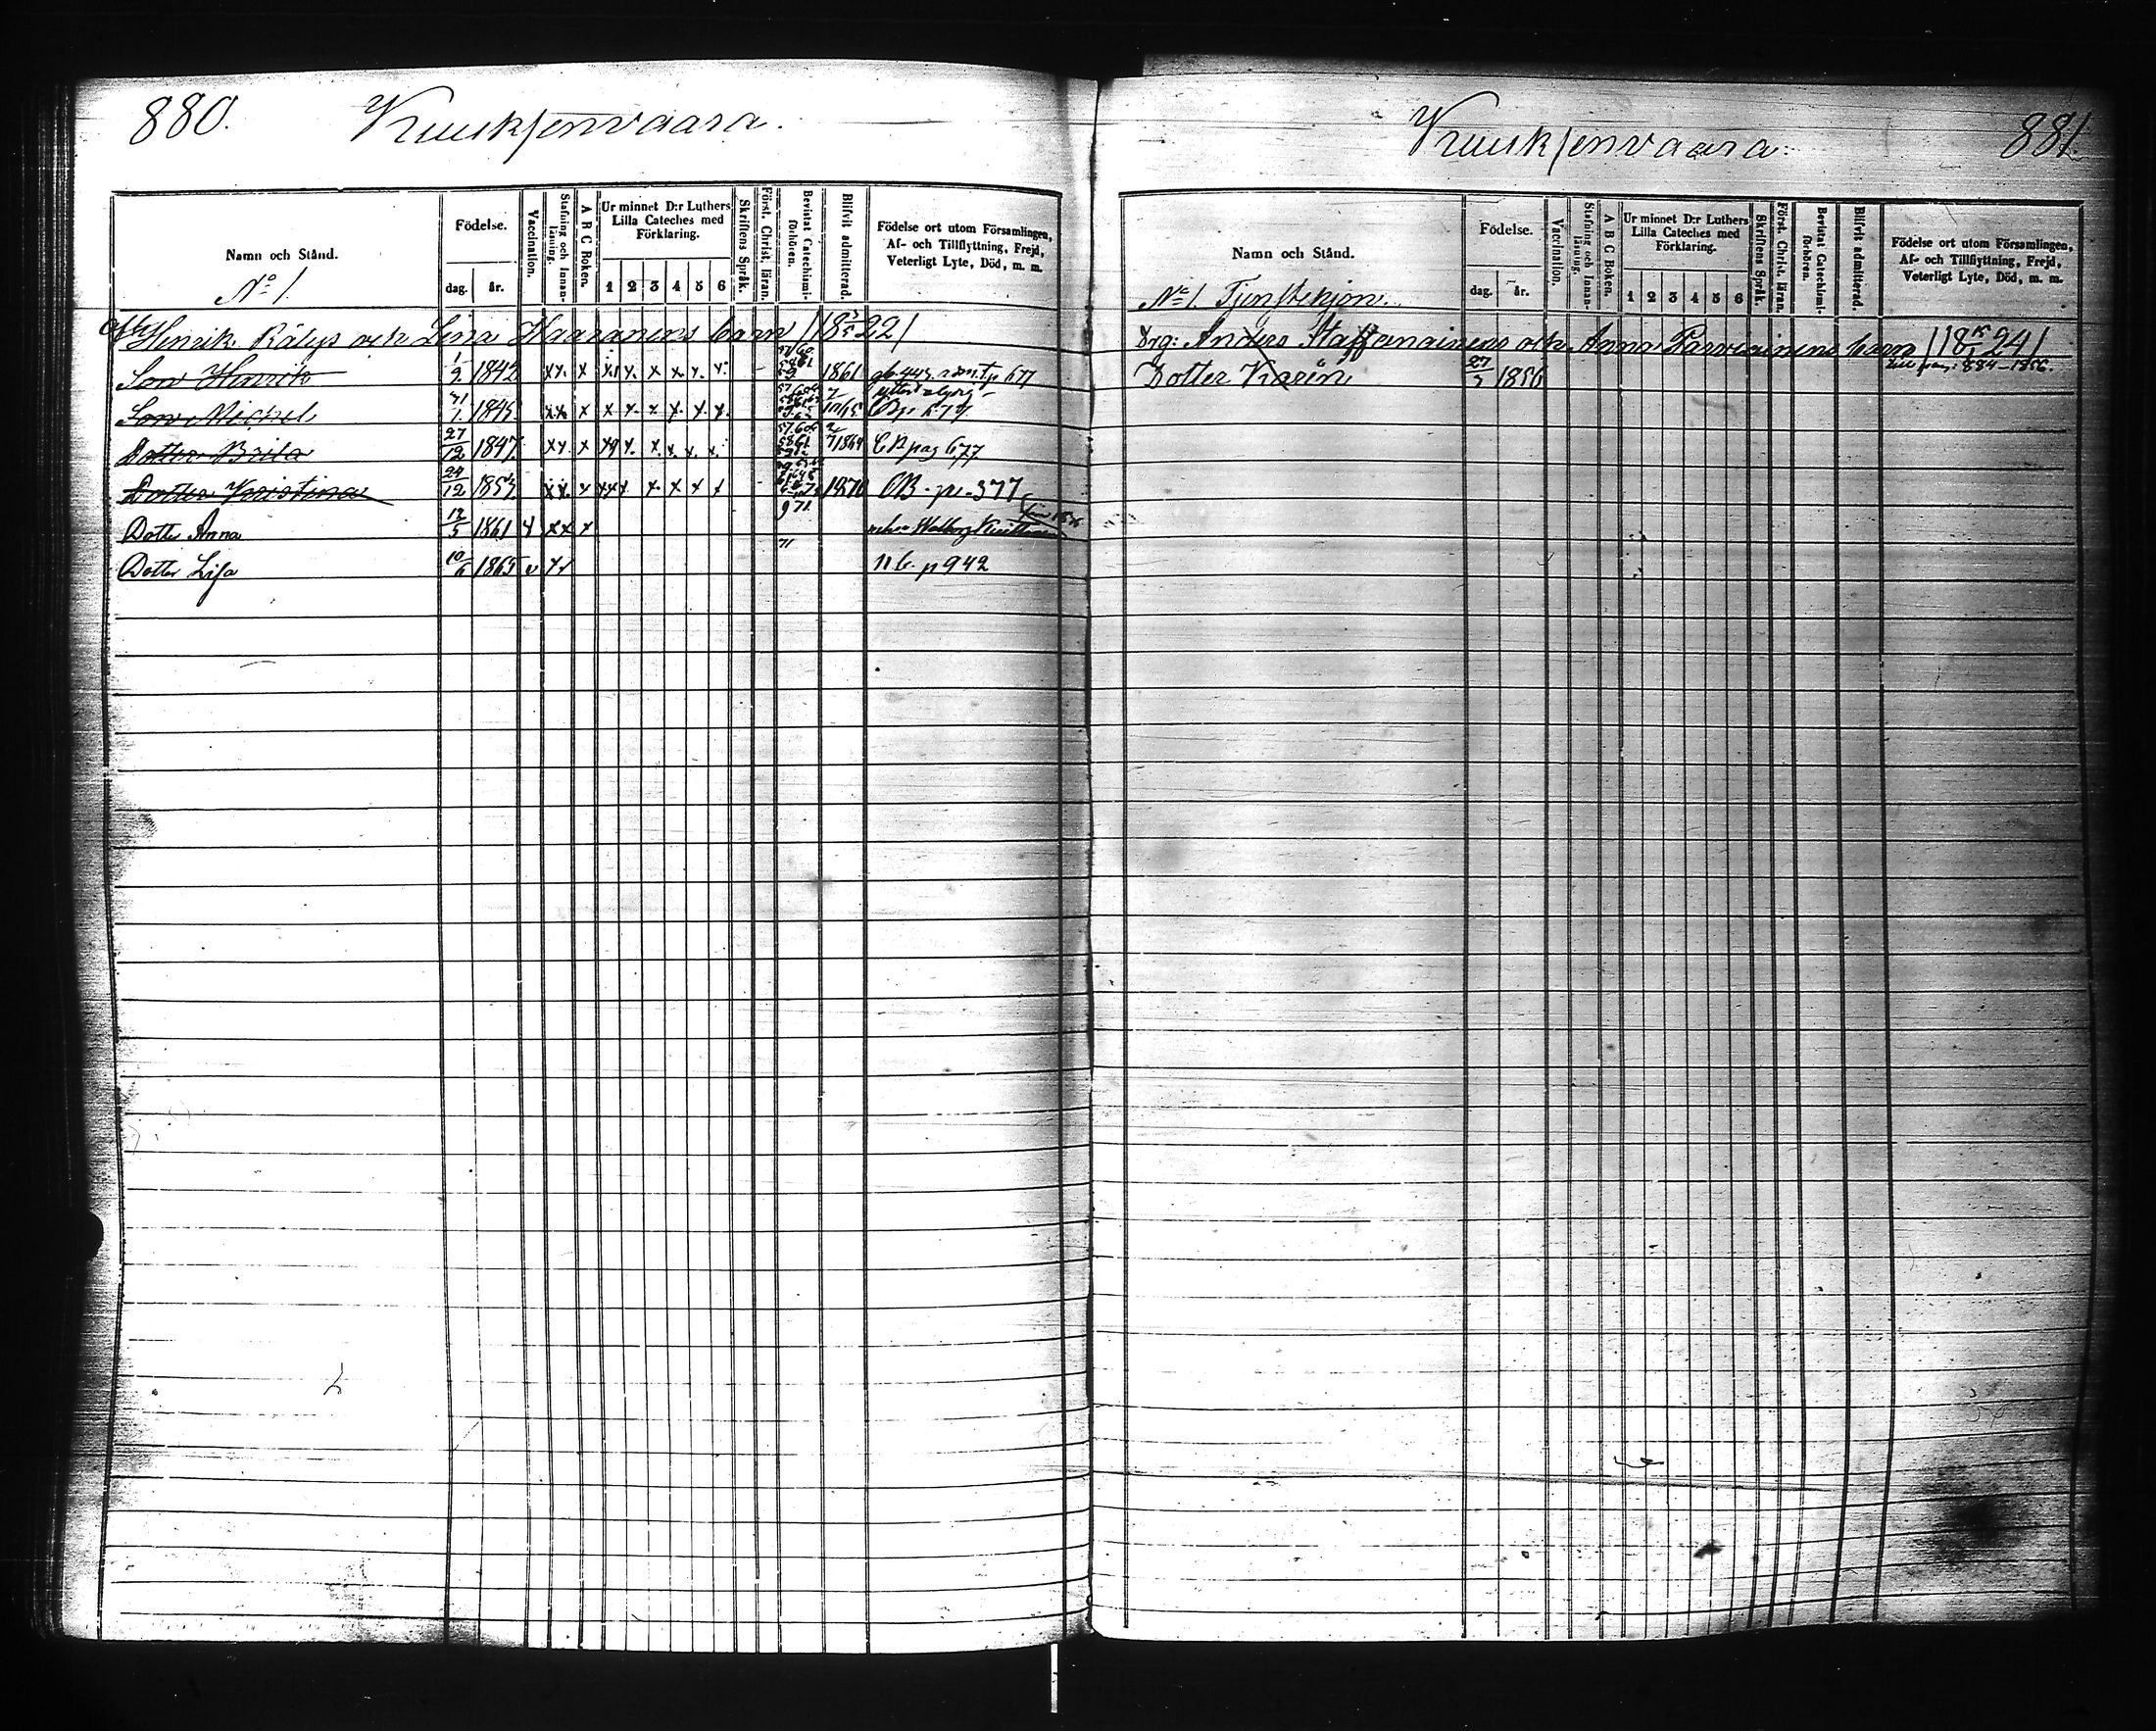 880. Kuuksenvaara.
Namn och Stånd.
Födelse.
dag. år.
Vaccination.
Stafning och Innan-läsning.
A B C Boken.
Ur minnet D:r Luthers Lilla Cateches med Förklaring.
1 2 3 4 5 6
Skriftens Språk.
Först. Christ. läran.
Bevistat Catechismi-förhören.
Blifvit admitterad.
Födelse ort utom Församlingen, Af- och Tillflyttning, Frejd, Veterligt Lyte, Död, m. m.
No 1.
Henrik Rätys och Lina Haaranens barn
Son Henrik 1/2 1842 x x x x x x x x 1861
Son Michel 1845 x x x x x x x x x
Dotter Brita 27/12 1847 x x x x x x x x 1864 CB pag 677
Dotter Kristina 24/12 x x x x x x x x 1870 CB. p. 377
Dotter Anna 12/5 1861 x x x x 71
Dotter Lisa 10/6 1865 v x x p 942
Kuuksenvaara. 881.
Namn och Stånd.
Födelse.
dag. år.
Vaccination.
Stafning och Innan-läsning.
A B C Boken.
Ur minnet D:r Luthers Lilla Cateches med Förklaring.
1 2 3 4 5 6
Skriftens Språk.
Först. Christ. läran.
Bevistat Catechismi-förhören.
Blifvit admitterad.
Födelse ort utom Församlingen, Af- och Tillflyttning, Frejd, Veterligt Lyte, Död, m. m.
No 1. Tjenstehjon.
Drg: Anders Staffanainens och Anna Parviainens barn
Dotter Karin 27/5 1856 pag. 884-1856.